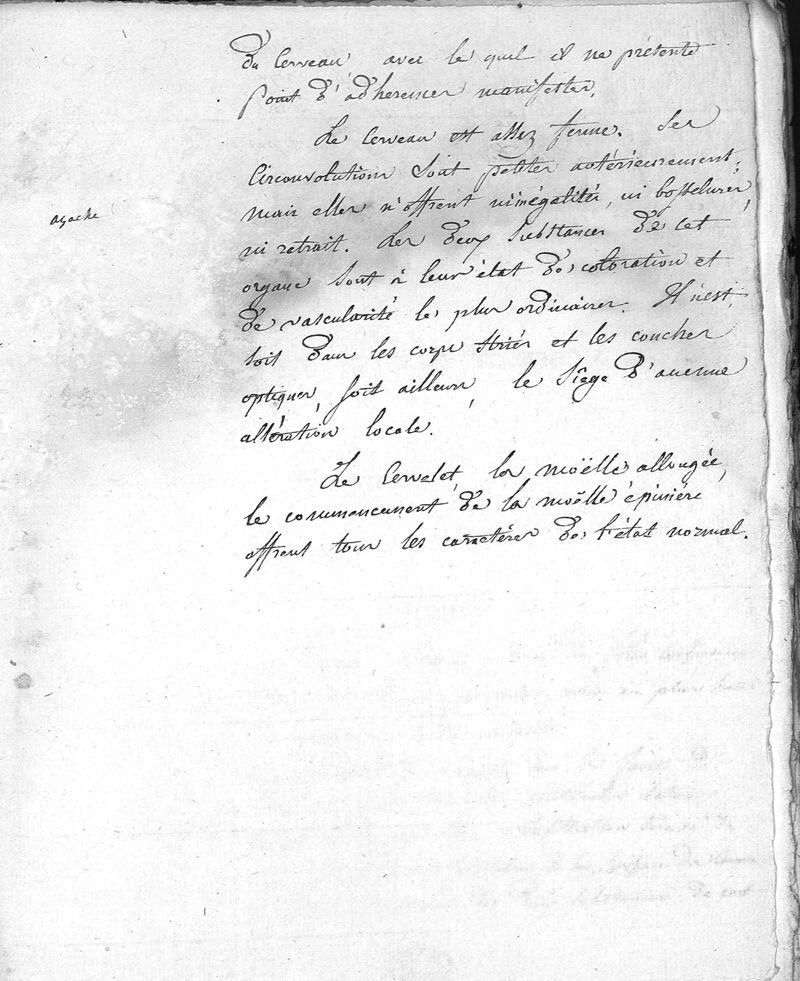 du Cerveau avec le quel il ne présente
point d'adherences manifestes.
Le Cerveau est assez ferme. Ses
Circonvolutions sont petites antérieurement,
mais elles n'offrent ni inégalités, ni bosselures,
ni retrait. Les deux substances de cet
organe sont à leur état de coloration et
de vascularité le plus ordinaires. Il n'est,
soit dans les corps striés et les couches
optiques, soit ailleurs, le siège d'aucune
altération locale.
Le Cervelet, la moëlle allongée,
le commencement de la moëlle épinière
offrent tous les caractères de l'état normal.